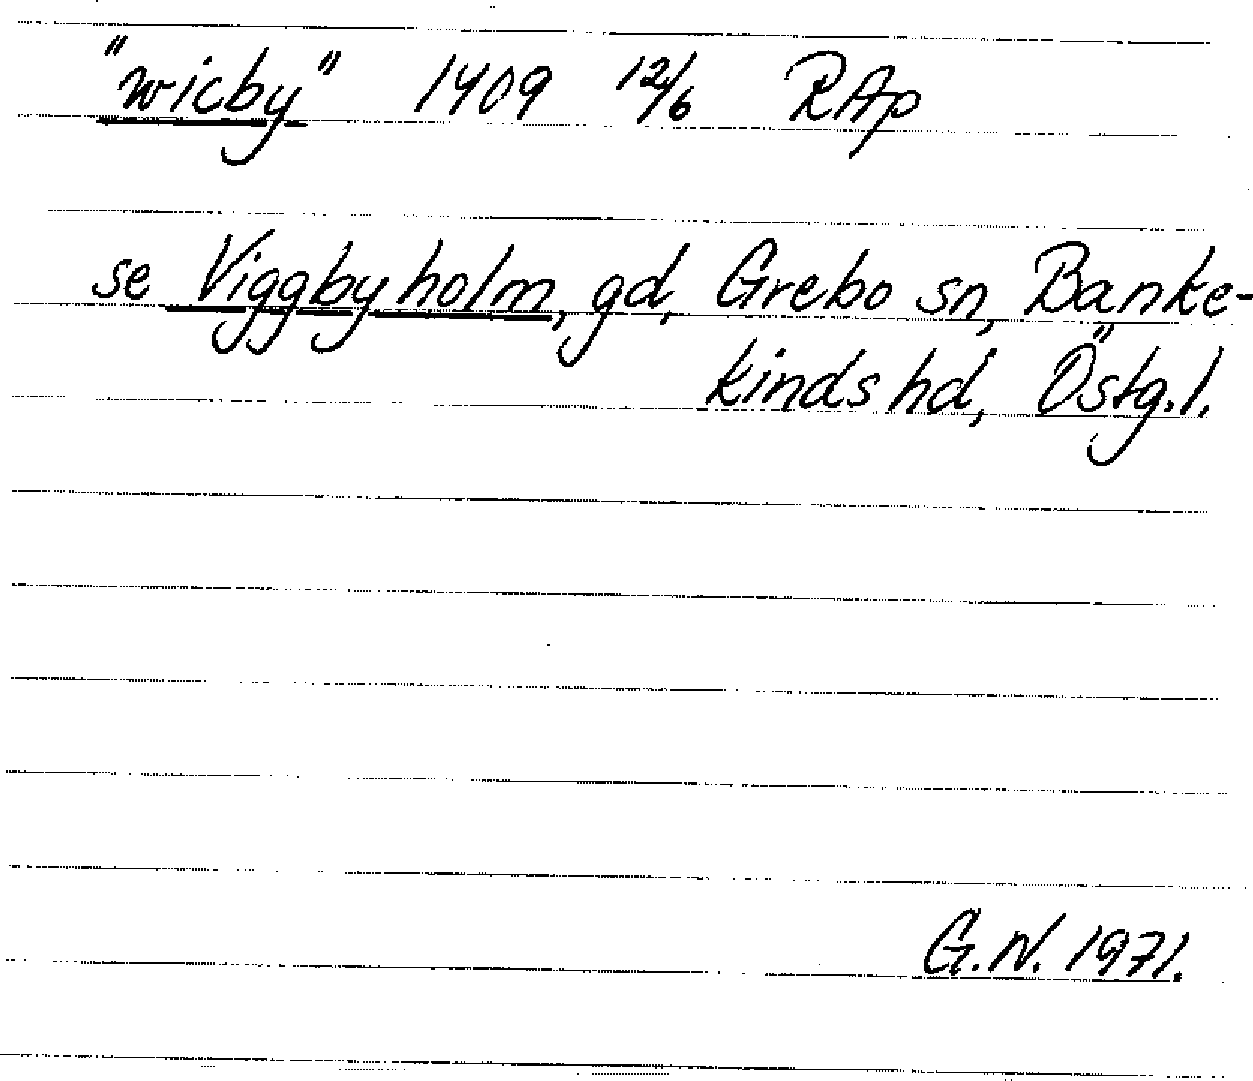 "wicby" 1409 12/6 RAp
se Viggbyholm, gd, Grebo sn, Banke-
kinds hd, Östg.l.
G.N. 1971.